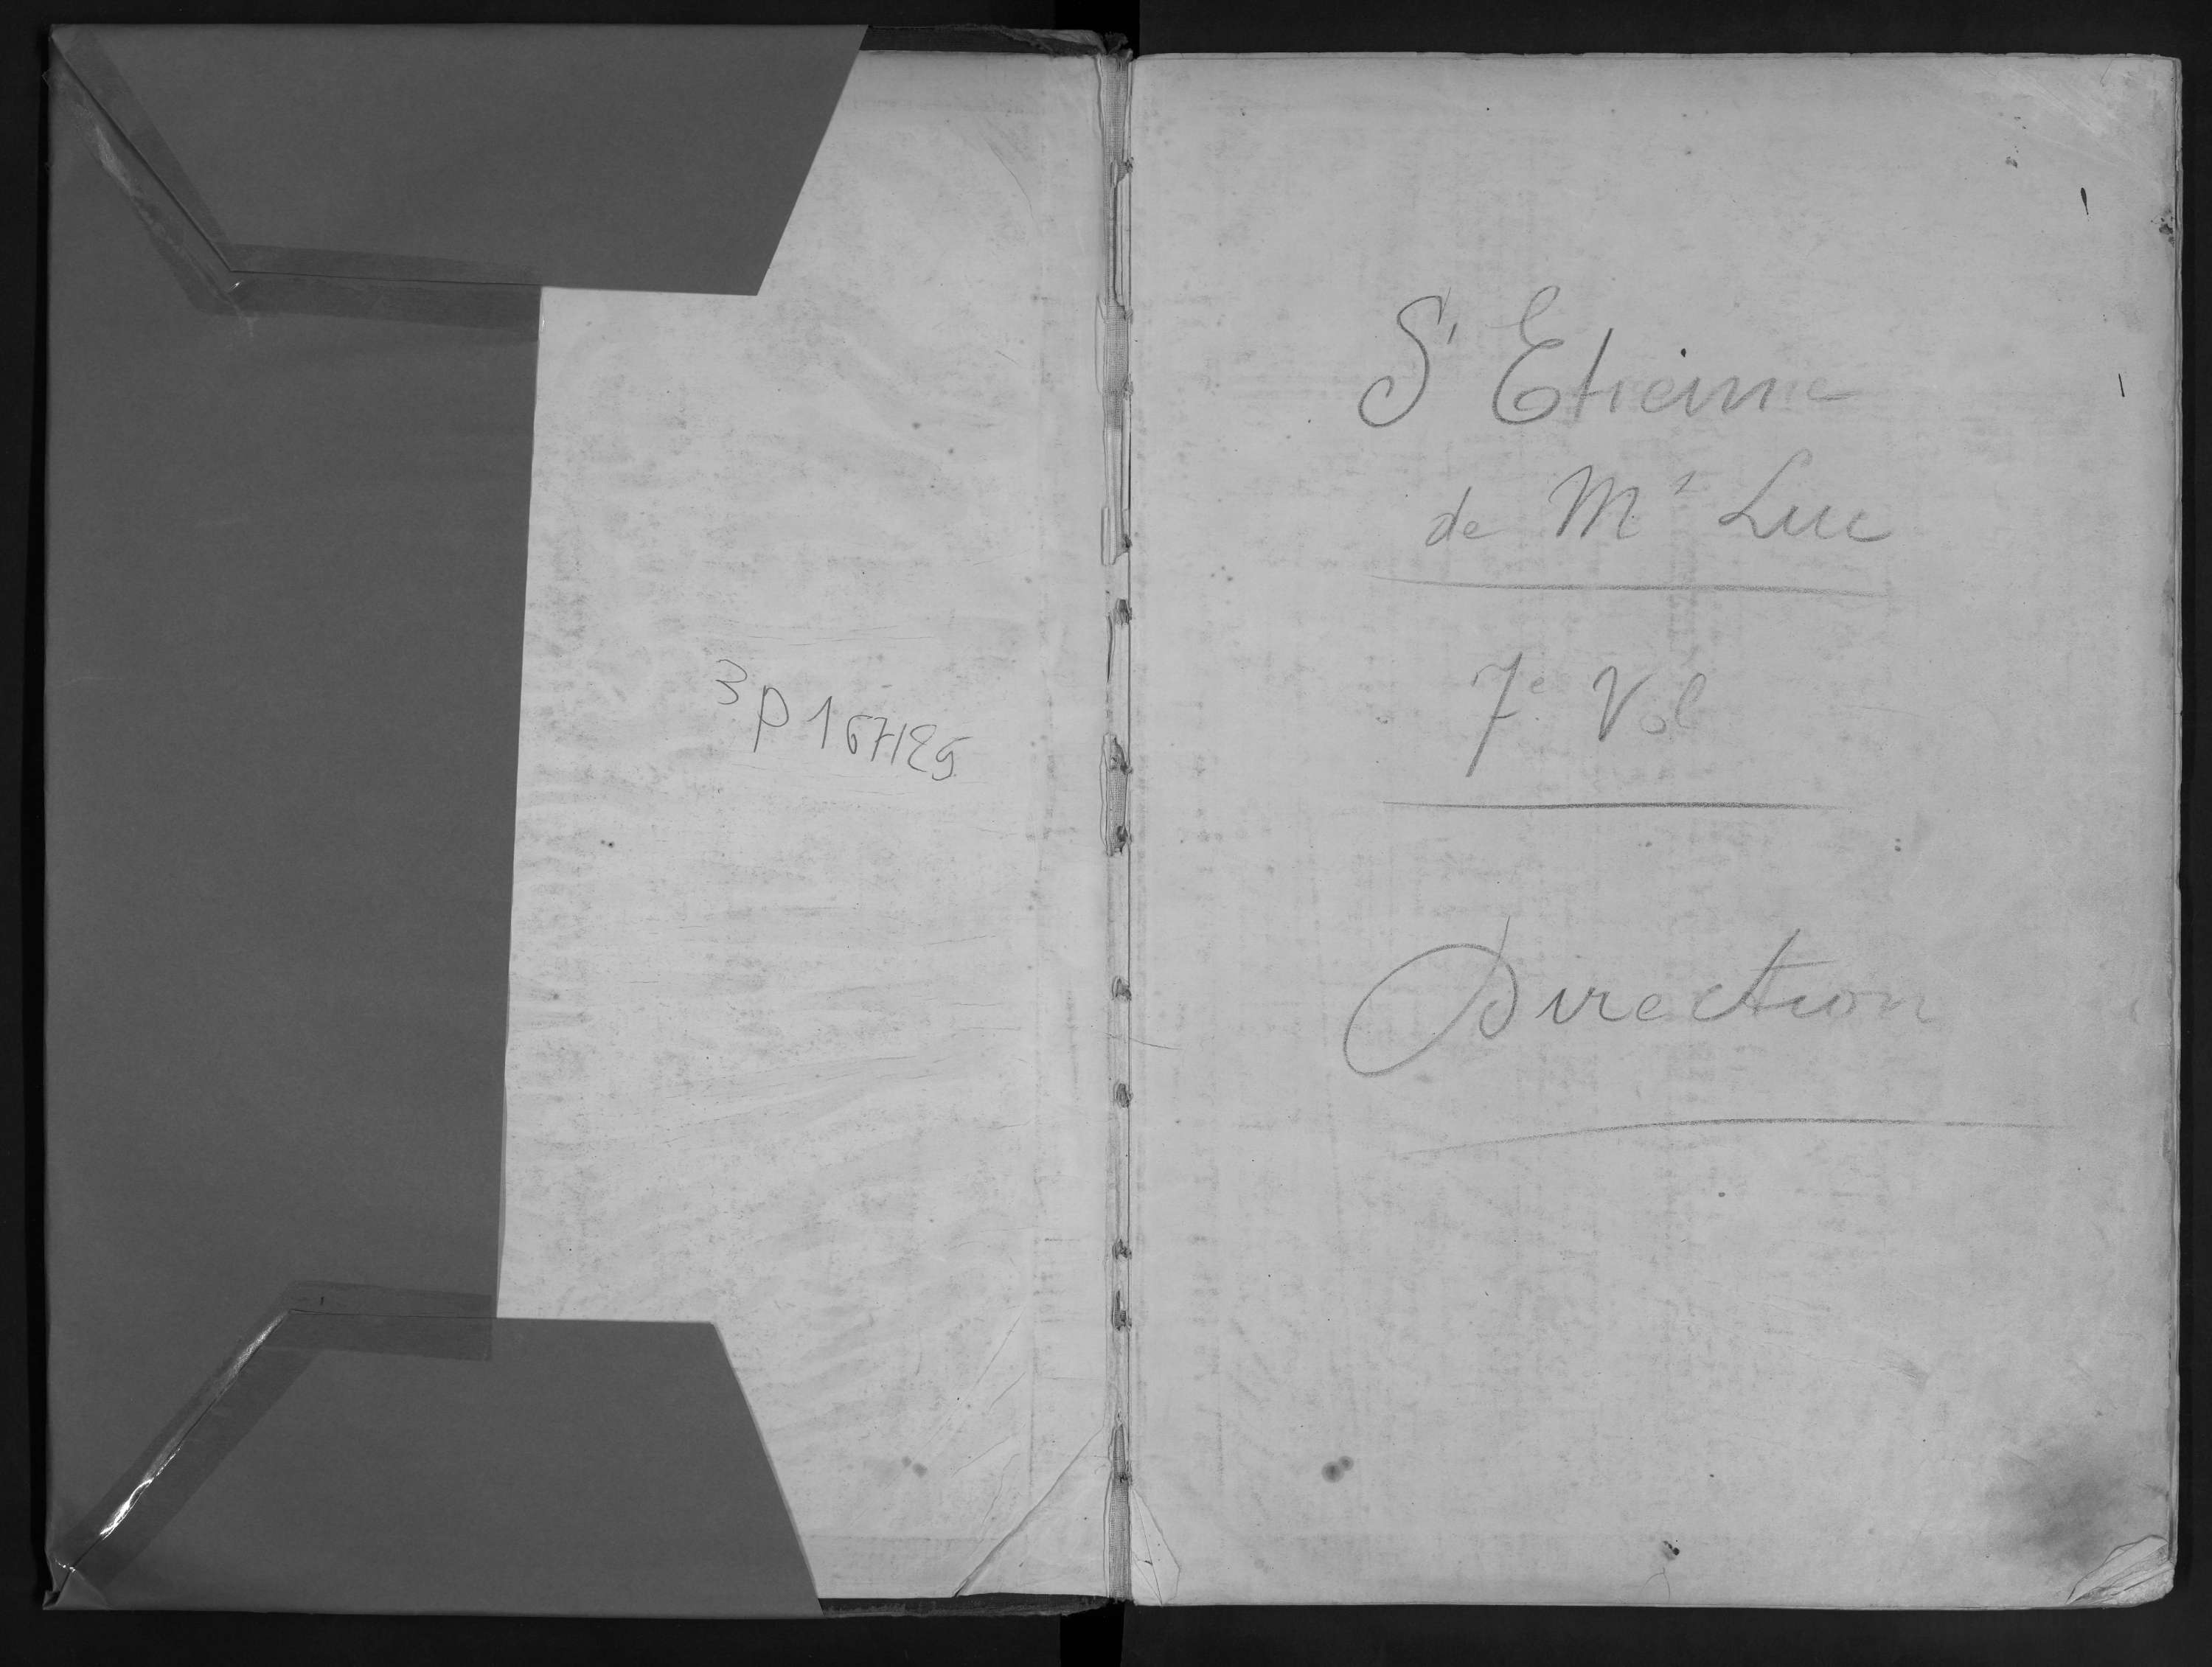 3 P 167/25
St Etienne
de Mt Luc
7e Vol
Direction